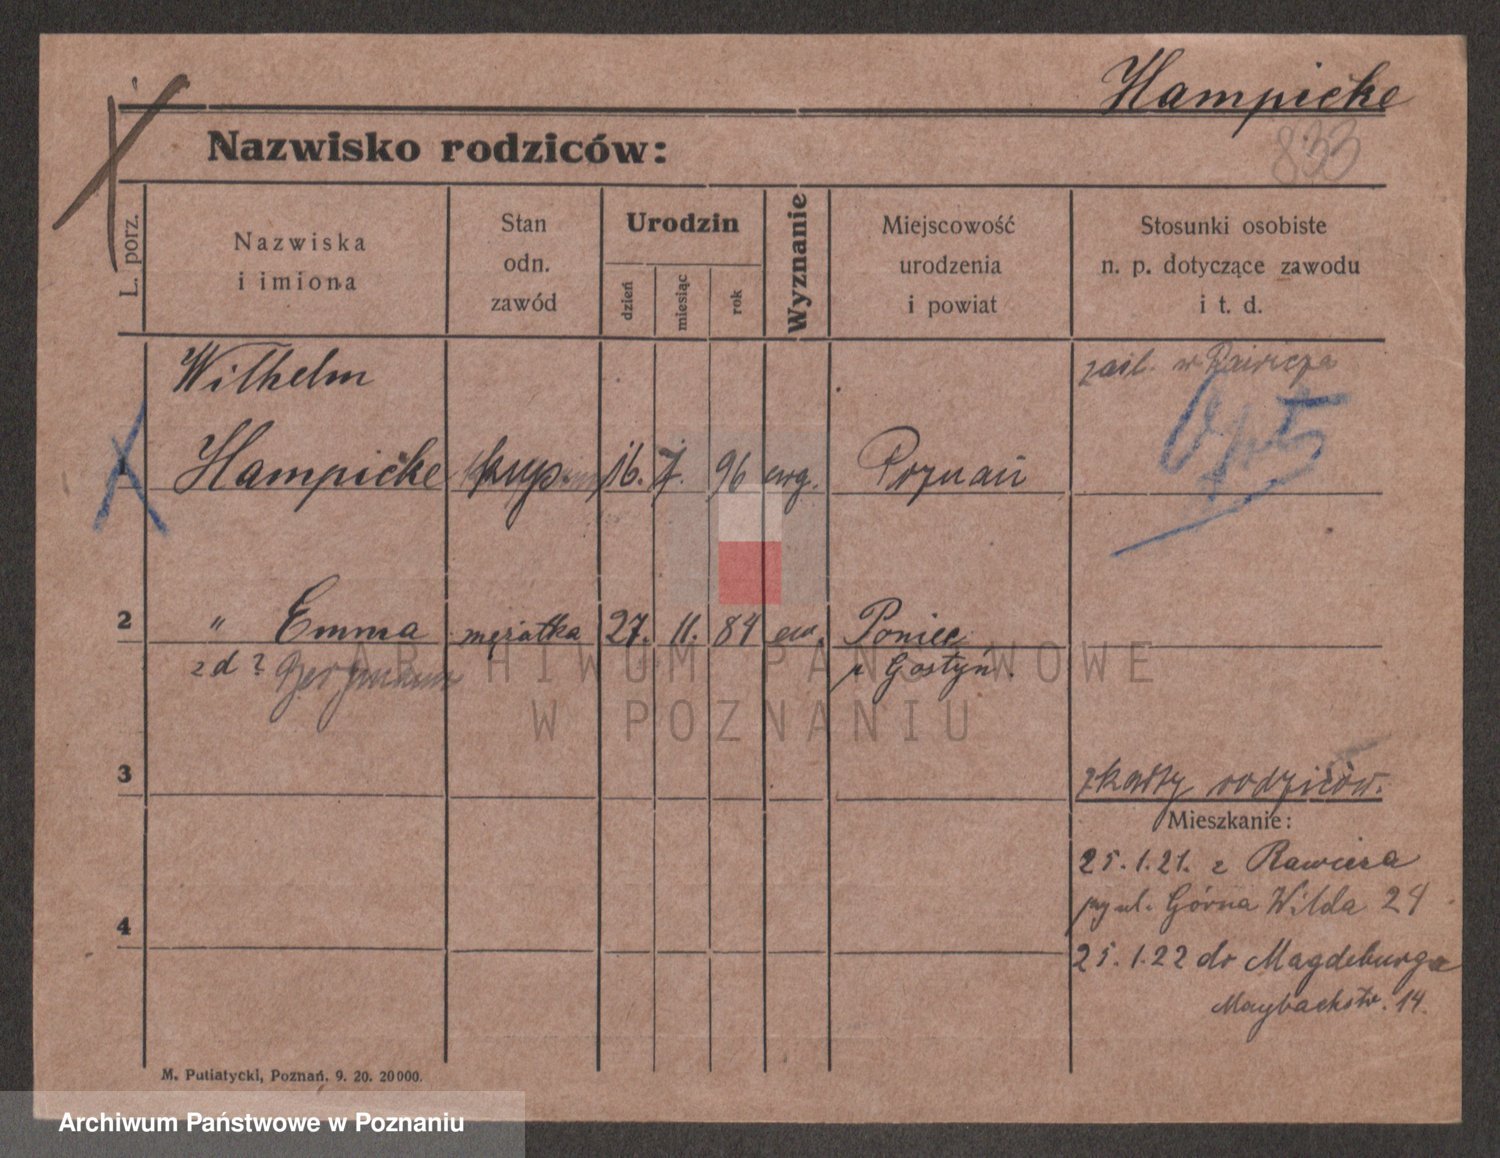 Hampicke
833
Nazwisko rodziców:
L. porz.
Nazwiska
i imiona
Stan
odn.
zawód
Urodzin
dzień
miesiąc
rok
Wyznanie
Miejscowość
urodzenia
i powiat
Stosunki osobiste
n. p. dotyczące zawodu
i t. d.
Wilhelm
zaśl. w Rawiczu
1 Hampicke kup. 16. 7. 96 ewg. Poznań
2 " Emma mężatka 27. 11. 84 ew. Poniec
z d?
p Gostyń.
ARCHIWUM PAŃSTWOWE
W POZNANIU
3
z karty rodziców.
Mieszkanie:
25.1.21. z Rawicza
przy ul. Górna Wilda 24
4
25.1.22 do Magdeburga
Maybachstr. 14.
M. Putiatycki, Poznań. 9. 20. 20000.
Archiwum Państwowe w Poznaniu